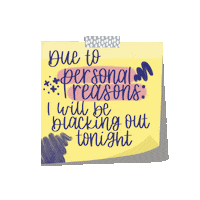 Due to
personal
reasons:
I will be
blacking out
tonight